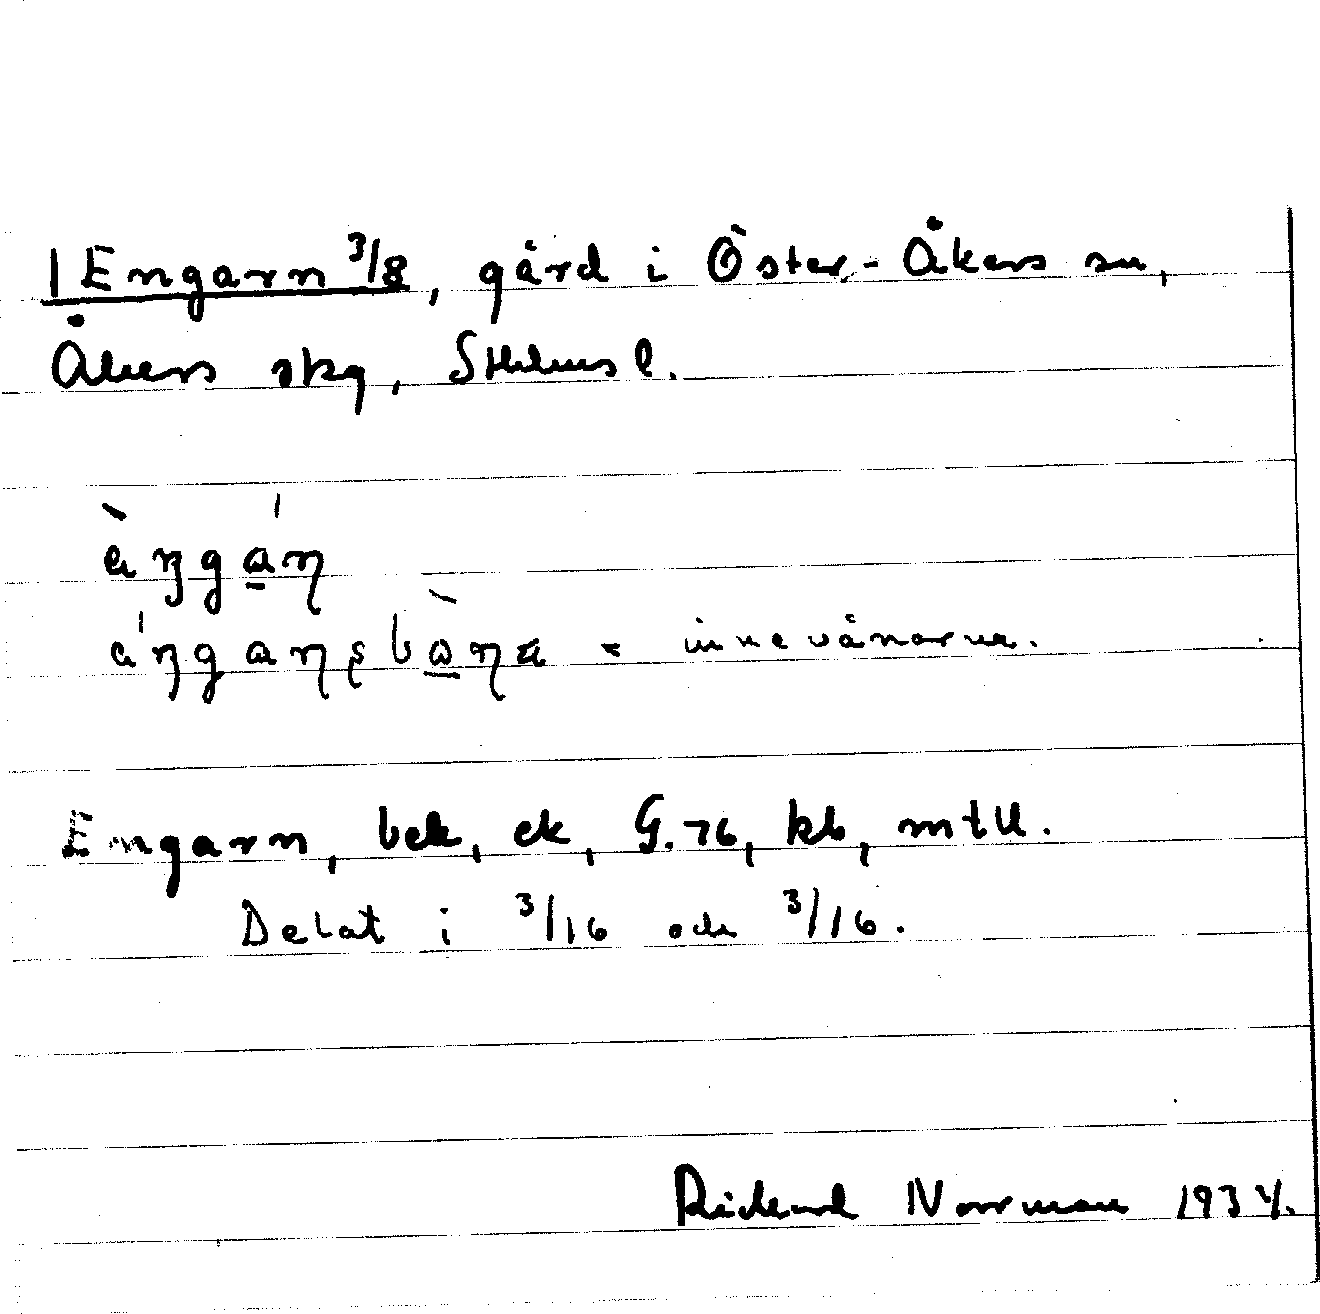 1 Engarn 3/8, gård i Öster-Åkers sn,
Åkers skg, Sthlms l.
Engarn, bek, ek, G.76, kb, mtll.
= innevånarna.
Delat i 3/16 och 3/16.
Rickard Norrman 1934.